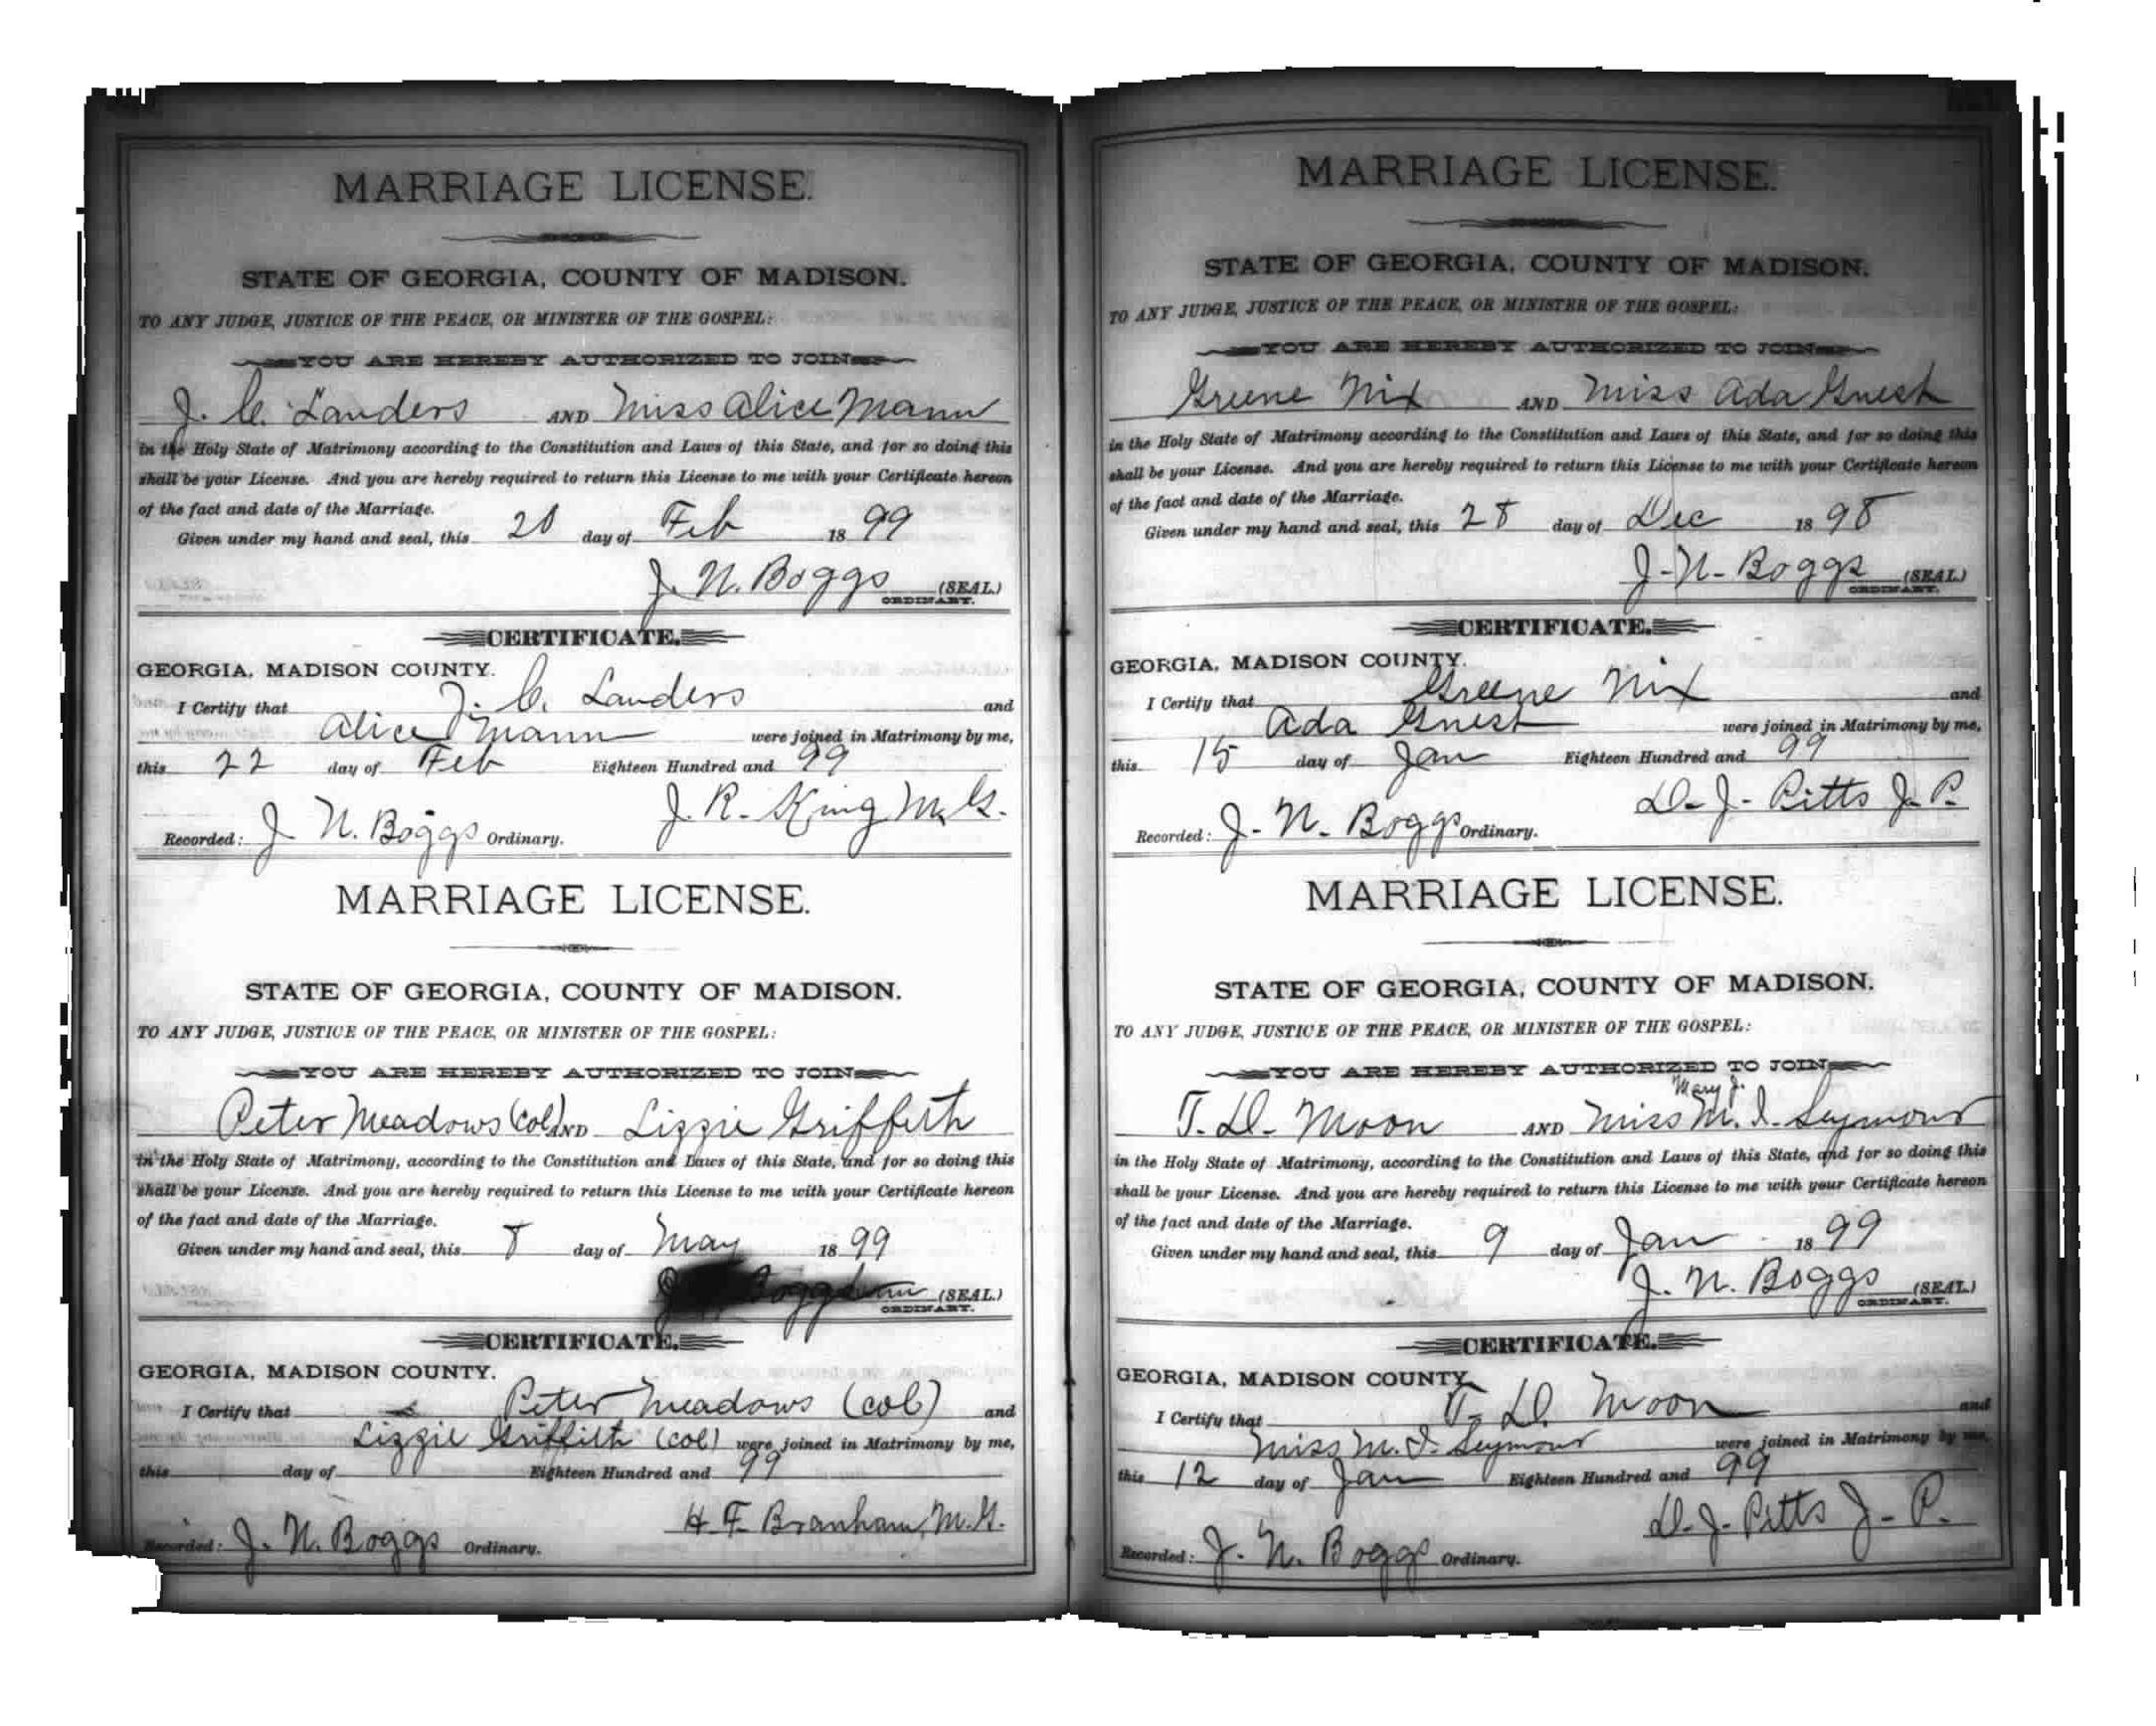 MARRIAGE LICENSE.
STATE OF GEORGIA, COUNTY OF MADISON.
TO ANY JUDGE, JUSTICE OF THE PEACE, OR MINISTER OF THE GOSPEL:
YOU ARE HEREBY AUTHORIZED TO JOIN
J. C. Landers AND Miss Alice Mann
in the Holy State of Matrimony according to the Constitution and Laws of this State, and for so doing this
shall be your License. And you are hereby required to return this License to me with your Certificate hereon
of the fact and date of the Marriage.
Given under my hand and seal, this 20 day of Feb 1899
J. N. Boggs (SEAL.)
ORDINARY.
CERTIFICATE.
GEORGIA, MADISON COUNTY.
I Certify that J. C. Landers and
Alice Mann were joined in Matrimony by me,
this 22 day of Feb Eighteen Hundred and 99
J. R. King M. G.
Recorded: J. N. Boggs Ordinary.
MARRIAGE LICENSE.
STATE OF GEORGIA, COUNTY OF MADISON.
TO ANY JUDGE, JUSTICE OF THE PEACE, OR MINISTER OF THE GOSPEL:
YOU ARE HEREBY AUTHORIZED TO JOIN
Peter Meadows (Col) AND Lizzie Griffeth
in the Holy State of Matrimony, according to the Constitution and Laws of this State, and for so doing this
shall be your License. And you are hereby required to return this License to me with your Certificate hereon
of the fact and date of the Marriage.
Given under my hand and seal, this 8 day of May 1899
J Boggs (SEAL.)
ORDINARY.
CERTIFICATE.
GEORGIA, MADISON COUNTY.
I Certify that Peter Meadows (col) and
Lizzie Griffith (col) were joined in Matrimony by me,
this day of Eighteen Hundred and 99
H. F. Branham, M. G.
Recorded: J. N. Boggs Ordinary.
MARRIAGE LICENSE.
STATE OF GEORGIA, COUNTY OF MADISON.
TO ANY JUDGE, JUSTICE OF THE PEACE, OR MINISTER OF THE GOSPEL:
YOU ARE HEREBY AUTHORIZED TO JOIN
Greene Nix AND Miss Ada Guest
in the Holy State of Matrimony according to the Constitution and Laws of this State, and for so doing this
shall be your License. And you are hereby required to return this License to me with your Certificate hereon
of the fact and date of the Marriage.
Given under my hand and seal, this 28 day of Dec 1898
J-N-Boggs (SEAL.)
ORDINARY.
CERTIFICATE.
GEORGIA, MADISON COUNTY.
I Certify that Greene Nix and
Ada Guest were joined in Matrimony by me,
this 15 day of Jan Eighteen Hundred and 99
D-J-Pitts J. P.
Recorded: J-N. Boggs Ordinary.
MARRIAGE LICENSE.
STATE OF GEORGIA, COUNTY OF MADISON.
TO ANY JUDGE, JUSTICE OF THE PEACE, OR MINISTER OF THE GOSPEL:
YOU ARE HEREBY AUTHORIZED TO JOIN
Mary J.
T. D. Moon AND Miss M. I. Seymour
in the Holy State of Matrimony, according to the Constitution and Laws of this State, and for so doing this
shall be your License. And you are hereby required to return this License to me with your Certificate hereon
of the fact and date of the Marriage.
Given under my hand and seal, this 9 day of Jan 1899
J. N. Boggs (SEAL.)
ORDINARY.
CERTIFICATE.
GEORGIA, MADISON COUNTY.
I Certify that T. D. Moon and
Miss M. I. Seymour were joined in Matrimony by me,
this 12 day of Jan Eighteen Hundred and 99
D. J-Pitts J-P.
Recorded: J. N. Boggs Ordinary.